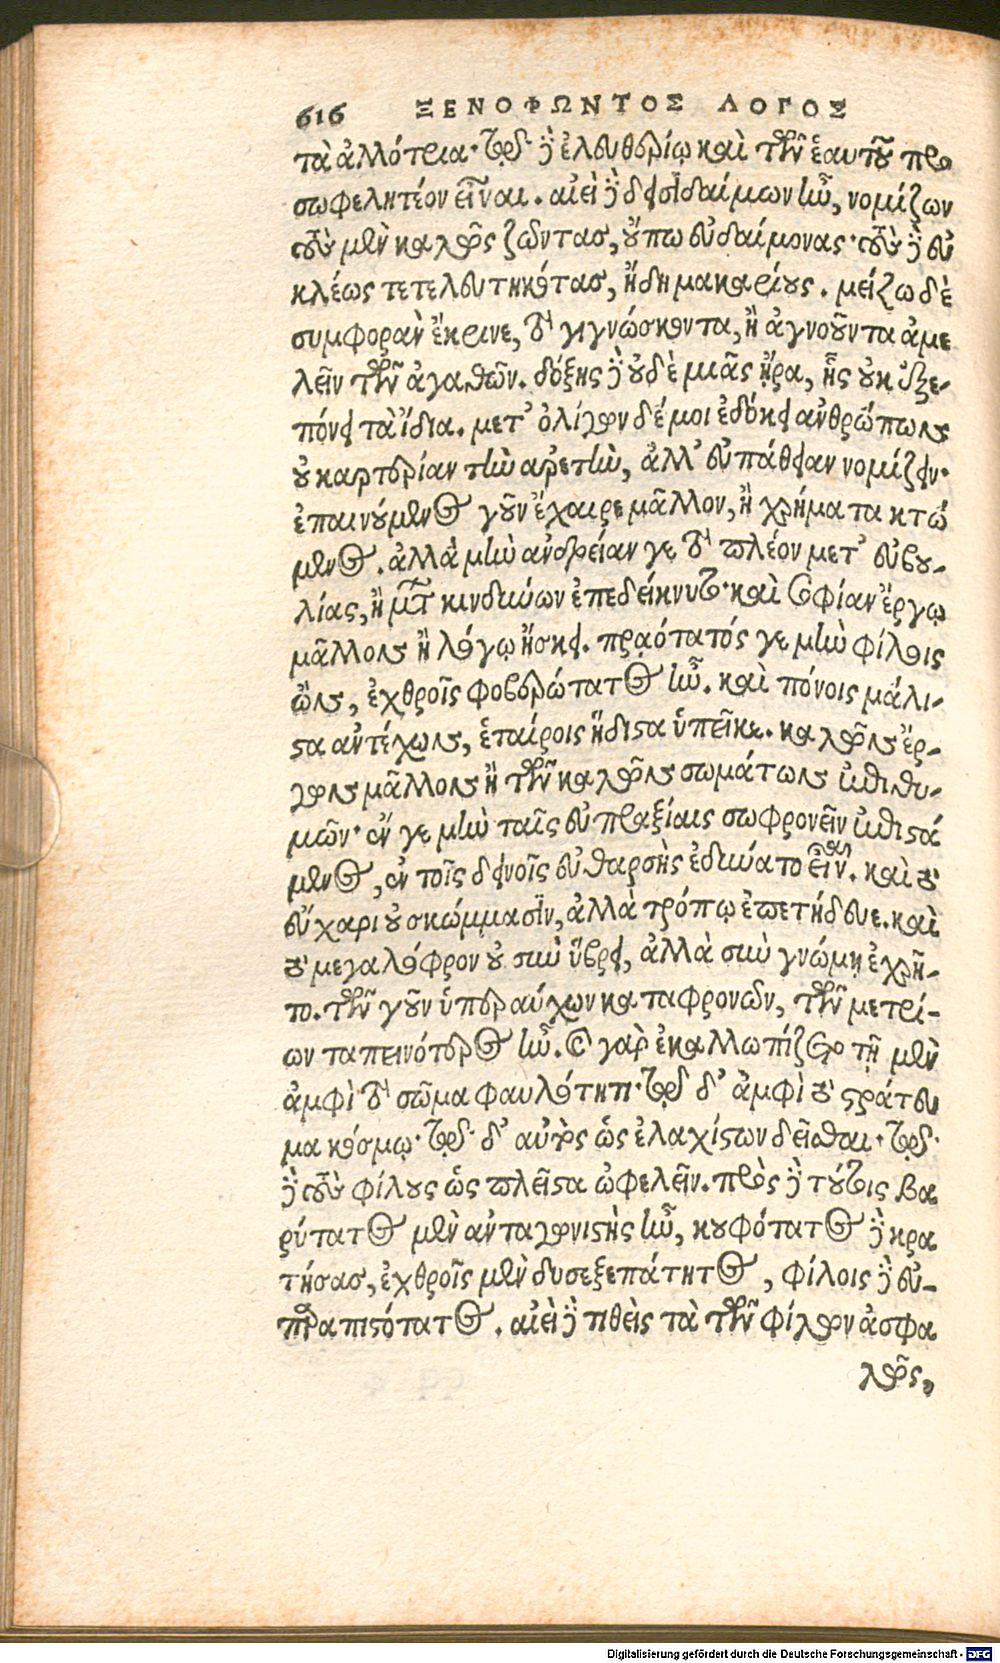 616 ΞΕΝΟΦΩΝΤΟΣ ΛΟΓΟΣ
τὰ ἀλλότρια· τῷ δὲ ἐλευθερίῳ καὶ τῶν ἑαυτοῦ προ
σωφελητέον εἶναι. αἰεὶ δὲ δεισιδαίμων ἦν, νομίζων
τοὺς μὲν καλῶς ζῶντας, οὔπω εὐδαίμονας· τοὺς δὲ εὐ
κλέως τετελευτηκότας, ἤδη μακαρίους. μείζω δὲ
συμφορὰν ἔκρινε, τὸ γιγνώσκοντα, ἢ ἀγνοοῦντα ἀμε
λεῖν τῶν ἀγαθῶν. δόξης δὲ οὐδὲ μιᾶς ἤρα, ἧς οὐκ ἐξε-
πόνει τὰ ἴδια. μετ' ὀλίγων δέ μοι ἐδόκει ἀνθρώπων
οὐ καρτερίαν τὴν ἀρετὴν, ἀλλ' εὐπάθειαν νομίζειν·
ἐπαινούμενος γοῦν ἔχαιρε μᾶλλον, ἢ χρήματα κτώ
μενος. ἀλλὰ μὴν ἀνδρείαν γε τὸ πλέον μετ' εὐβου-
λίας, ἢ μετὰ κινδύνων ἐπεδείκνυτο· καὶ σοφίαν ἔργῳ
μᾶλλον ἢ λόγῳ ἤσκει. πραότατός γε μὴν φίλοις
ὢν, ἐχθροῖς φοβερώτατος ἦν. καὶ πόνοις μάλι-
στα ἀντέχων, ἑταίροις ἥδιστα ὑπεῖκε. καλῶν ἔρ-
γων μᾶλλον ἢ τῶν καλῶν σωμάτων ἐπιθυ-
μῶν· ἔν γε μὴν ταῖς εὐπραξίαις σωφρονεῖν ἐπιστά
μενος, ἐν τοῖς δεινοῖς εὐθαρσὴς ἐδύνατο εἶναι. καὶ τὸ
εὔχαρι οὐ σκώμμασιν, ἀλλὰ τρόπῳ ἐπετήδευε. καὶ
τὸ μεγαλόφρον οὐ σὺν ὕβρει, ἀλλὰ σὺν γνώμῃ ἐχρῆ-
το. τῶν γοῦν ὑπεραύχων καταφρονῶν, τῶν μετρί-
ων ταπεινότερος ἦν. καὶ γὰρ ἐκαλλωπίζετο τῇ μὲν
ἀμφὶ τὸ σῶμα φαυλότητι· τῷ δ' ἀμφὶ τὸ στράτευ
μα κόσμῳ· τῷ δ' αὐτὸς ὡς ἐλαχίστων δεῖσθαι· τῷ
δὲ τοὺς φίλους ὡς πλεῖστα ὠφελεῖν. πρὸς δὲ τούτοις βα
ρύτατος μὲν ἀνταγωνιστὴς ἦν, κουφότατος δὲ κρα
τήσας, ἐχθροῖς μὲν δυσεξεπάτητος, φίλοις δὲ εὐ-
παραπιστότατος. αἰεὶ δὲ τιθεὶς τὰ τῶν φίλων ἀσφα
λῶς,
Digitalisierung gefördert durch die Deutsche Forschungsgemeinschaft - DFG